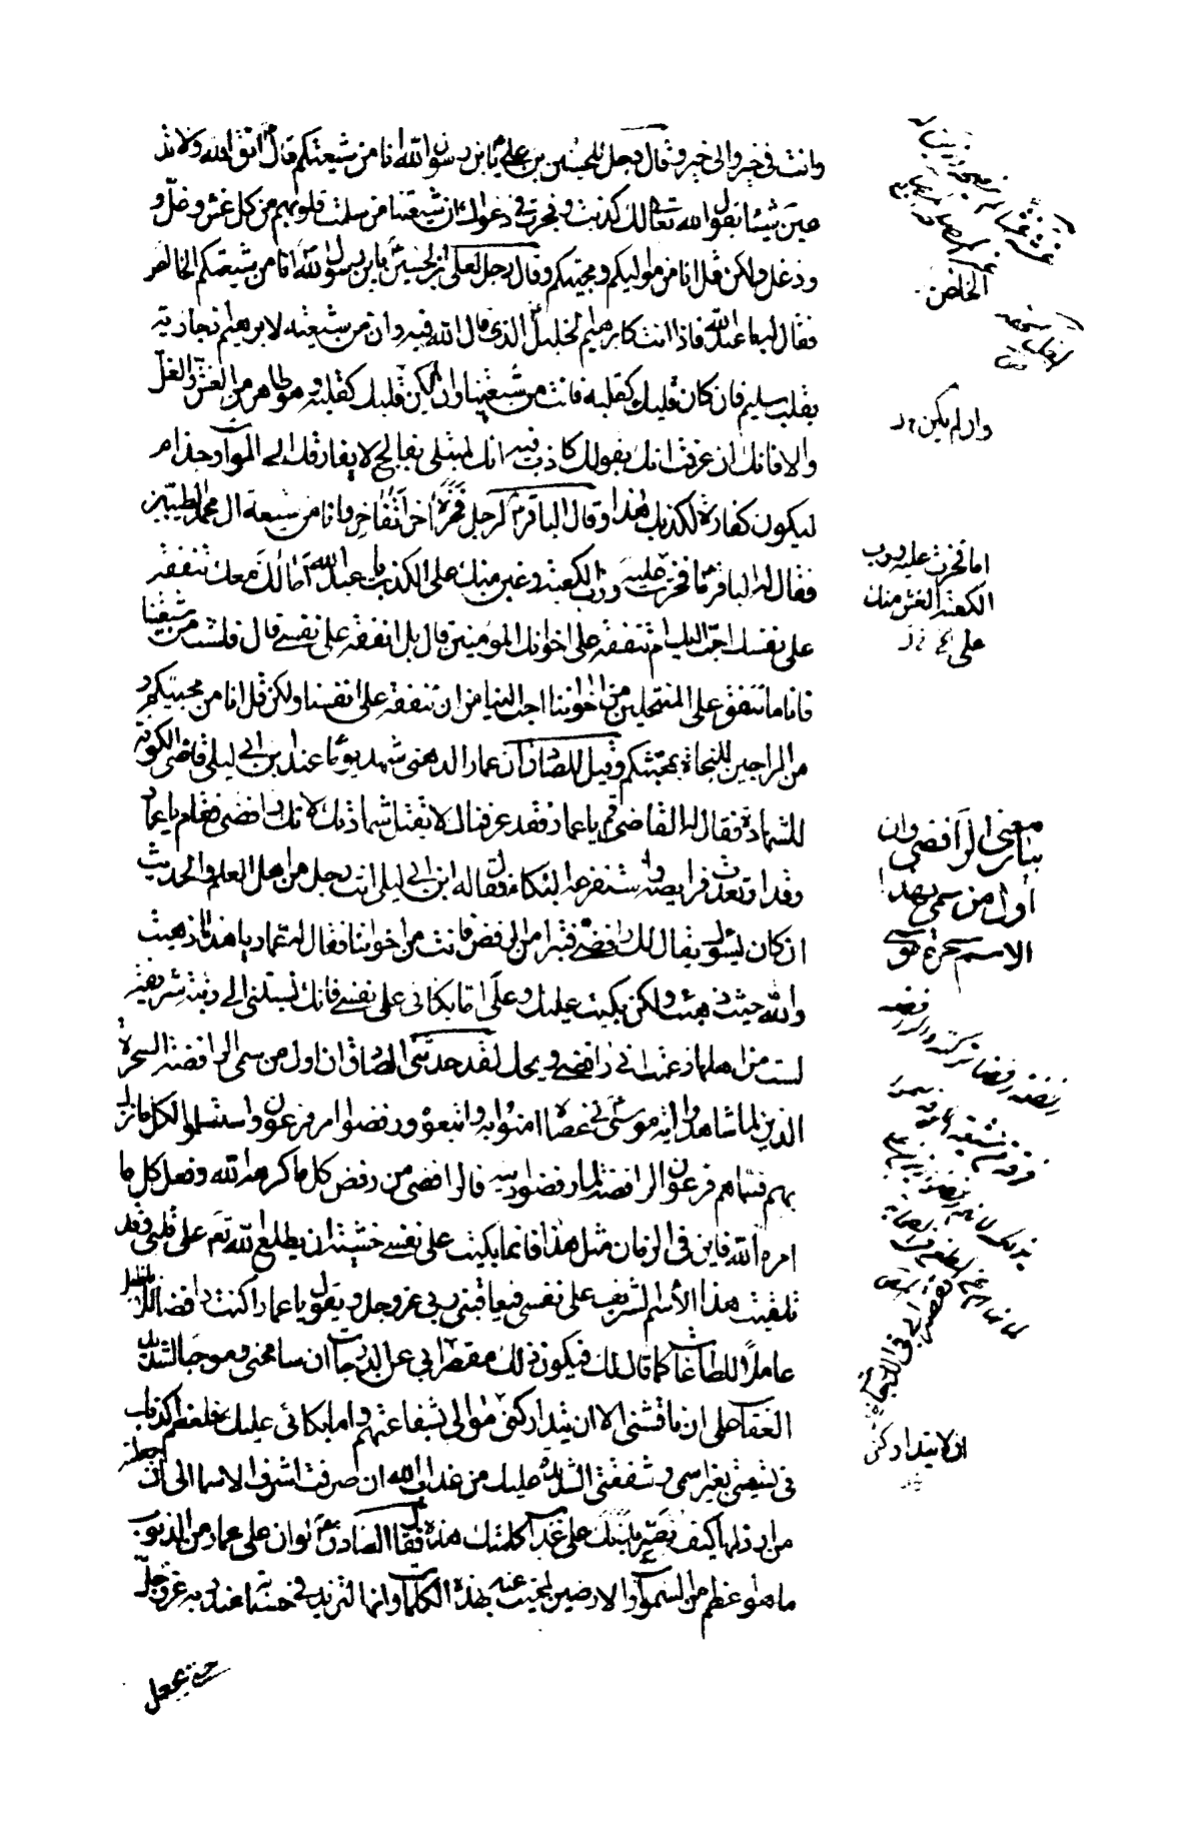 وانت في خير والى خير وقال رجل للحسين بن علي ع يا بن رسول الله انا من شيعتكم قال ع اتق الله ولا تد
عين شيئا يقول الله تعالى لك كذبت وفجرت في دعواك ان شيعتنا من سلمت قلوبهم من كل غش وغل و
ودغل ولكن قل انا من مواليكم ومحبيكم وقال رجل لعلي بن الحسين ع يا بن رسول الله انا من شيعتكم الخالص
فقال له يا عبد الله فاذا انت كابرهيم الخليل ع الذي قال الله فيه وان من شيعته لابرهيم اذ جاء ربه
بقلب سليم فان كان قلبك كقلبه فانت من شيعتنا وان لم يكن قلبك كقلبه وهو طاهر من الغش والغل
والا فانك ان عرفت انك بقولك كاذب فيه انك لمبتلى بفالج لا يفارقك الى الموت او جذام
ليكون كفارة لكذبك هذا وقال الباقر ع لرجل فخر على اخر اتفاخرني وانا من شيعة ال محمد الطيبين
فقال له الباقر ع ما فخرت عليه ورب الكعبة وغبن منك على الكذب يا عبد الله امالك معك تنفقه
على نفسك احب اليك ام تنفقه على اخوانك المؤمنين قال بل انفقه على نفسي قال فلست من شيعتنا
فانا ما ننفق على المنتحلين من اخواننا احب الينا من ان ننفقه على انفسنا ولكن قل انا من محبيكم و
من الراجين للنجاة بمحبتكم وقيل للصادق ع ان عمار الدهني شهد يوما عند ابن ابي ليلى قاضي الكوفة
للشهادة فقال له القاضي قم يا عمار فقد عرفناك لا تقبل شهادتك لانك رافضي فقام يا عمار
وقد ارتعدت فرايصه واستفرغه البكاء فقال له ابن ابي ليلى انت رجل من اهل العلم والحديث
ان كان يسوك ان يقال لك رافضي فتبرا من الرفض فانت من اخواننا فقال له عمار يا هذا ما ذهبت
والله حيث ذهبت ولكن بكيت عليك وعلي اما بكائي على نفسي فانك نسبتني الى رتبة شريفة
لست من اهلها زعمت اني رافضي ويحك لقد حدثني الصادق ع ان اول من سمي الرافضة السحرة
الذين لما شاهدوا اية موسى في عصاه امنوا به واتبعوه ورفضوا امر فرعون واستسلموا لكل ما نزل
بهم فسماهم فرعون الرافضة لما رفضوا دينه فالرافضي من رفض كل ما كرهه الله وفعل كل ما
امره الله فاين في الزمان مثل هذا فانما بكيت على نفسي خشية ان يطلع الله تع على قلبي وقد
تلقبت هذا الاسم الشريف على نفسي فيعاتبني ربي عز وجل ويقول يا عمار اكنت رافضا للاباطيل
عاملا للطاعات كما قال لك فيكون ذلك مقصرا بي عن الدرجات ان سامحني وموجبا لشديد
العقاب علي ان ناقشني الا ان يتداركني موالي بشفاعتهم واما بكائي عليك فلعظم كذبك
في تسميتي بغير اسمي وشفقتي الشديدة عليك من عذاب الله ان صرفت اشرف الاسما الى ان جعلته
من ارذلها كيف يصبر بدنك على عذاب كلمتك هذه فقال الصادق ع لو ان على عمار من الذنوب
ما هو اعظم من السموات والارضين لمحيت عنه بهذه الكلمات وانها لتزيد في حسناته عند ربه عز وجل
حتى يجعل
الخالص
وان لم يكن
اما فخرت عليه ورب
الكعبة الغش منك
على
معنى الرافضي وان
اول من سمي بهذا
الاسم سحرة موسى
مقصرا بي في الدرجات
ان لا يتداركني